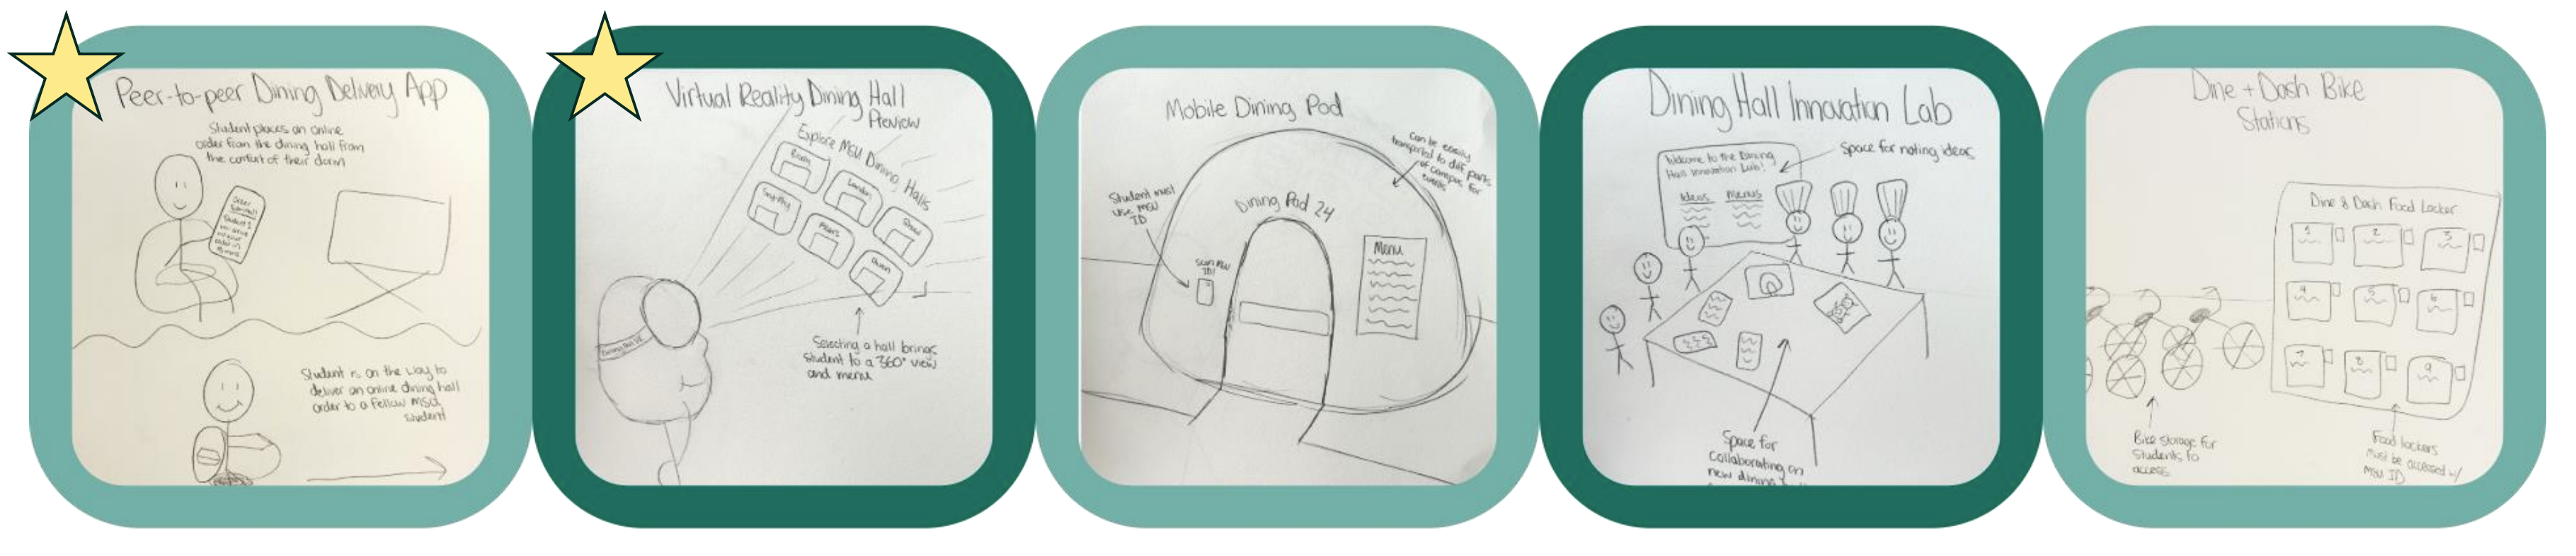 Peer-to-peer Dining Delivery App
Student places an online
order from the dining hall from
the comfort of their dorm
Student is on the way to
deliver an online dining hall
order to a fellow MSU
student
Virtual Reality Dining Hall
Preview
Explore MSU Dining Halls
Brody
Landon
Shaw
Snyphi
Akers
Owen
Selecting a hall brings
student to a 360° view
and menu
Mobile Dining Pod
Can be easily
transported to diff parts
of campus for
events
Student must
use MSU
ID
Dining Pod 24
Scan MSU
ID!
Menu
Dining Hall Innovation Lab
Welcome to the Dining
Hall Innovation Lab!
Ideas Menus
Space for noting ideas
Space for
collaborating on
new dining
Dine + Dash Bike
Stations
Dine & Dash Food Locker
1 2 3
4 5 6
7 8 9
Bike storage for
students to
access
Food lockers
must be accessed w/
MSU ID